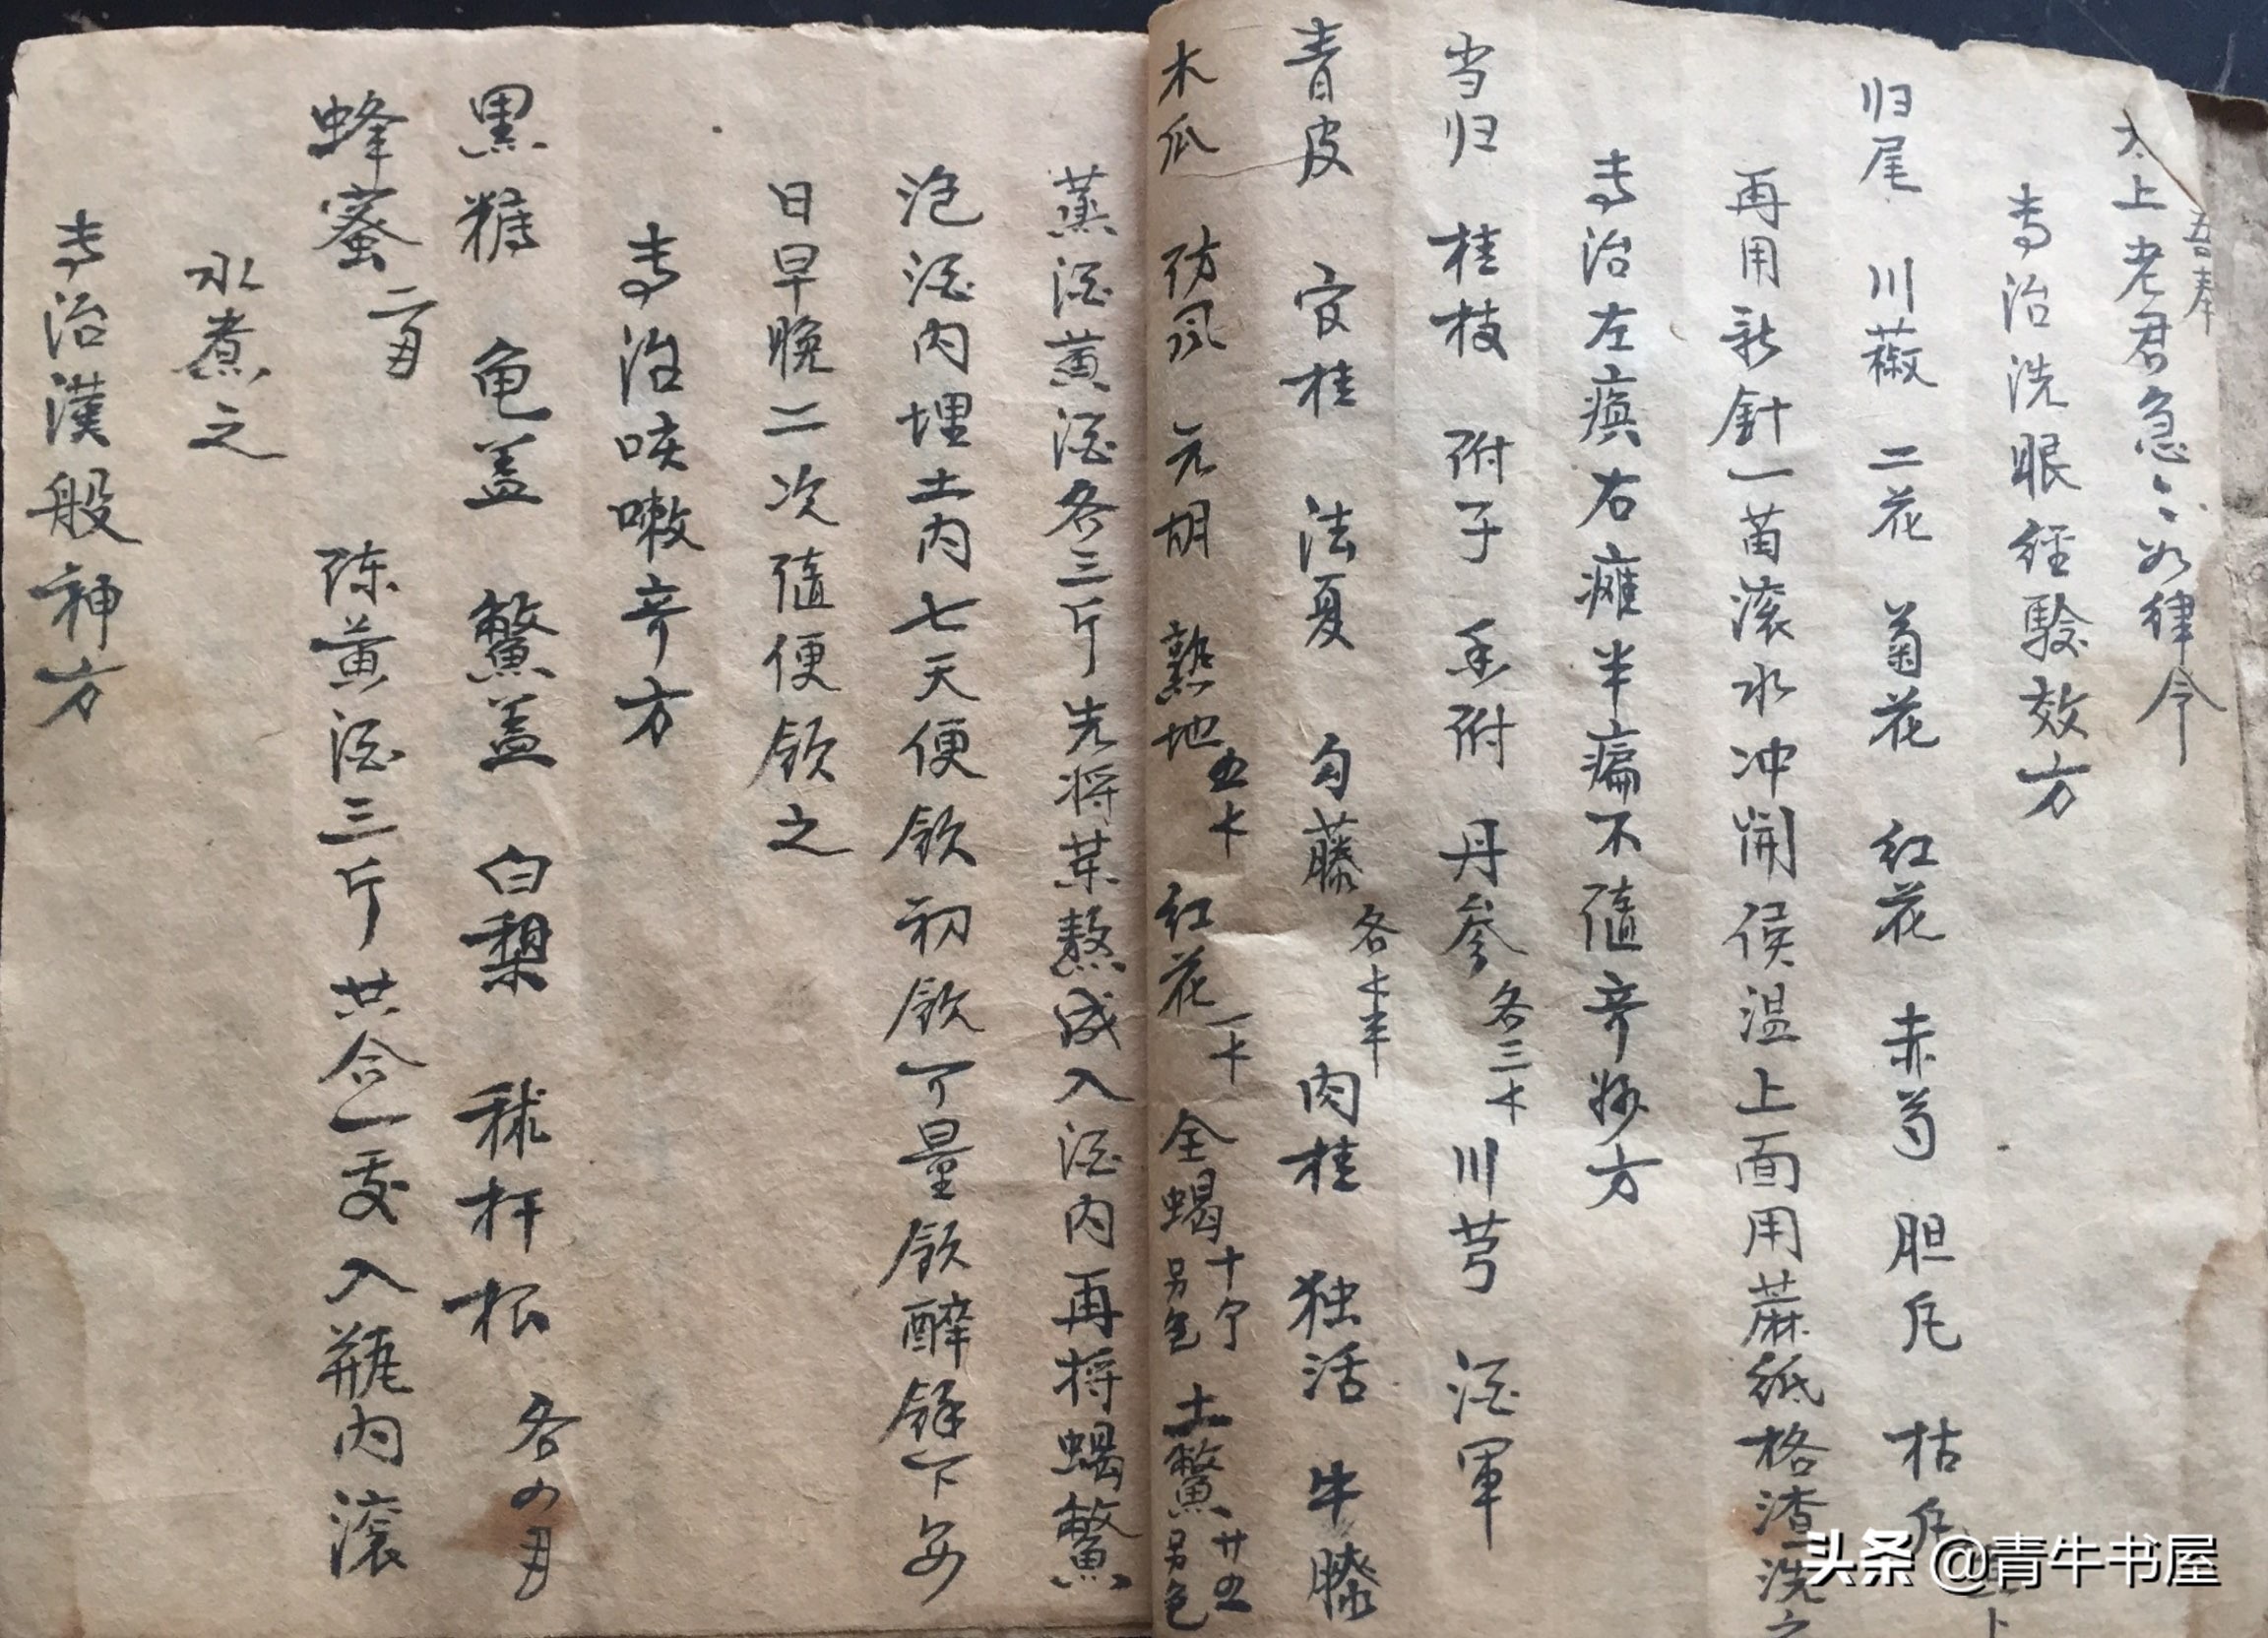 吾奉
太上老君急〻如律令
专治洗眼经驗效方
归尾 川椒 二花 菊花 红花 赤芍 胆凡 枯凡
再用新針一苗滚水冲開候温上面用蔴纸格渣洗之
专治左瘓右癱半瘺不随奇妙方
当归 桂枝 附子 香附 丹参各三卜 川芎 酒軍
青皮 官桂 法夏 勾藤各卜半 肉桂 独活 牛膝
木瓜 防风 元胡 熟地五卜 红花一卜 全蝎十个另包 土鱉廿四另包
蒸酒黄酒各三斤先将药熬成入酒内再将蝎鱉
泡酒内埋土内七天便飲初飲不量飲醉後下每
日早晚二次随便飲之
专治咳嗽奇方
黑糖 龟盖 鱉盖 白梨 秫杆根 各四两
蜂蜜二两 陈黄酒三斤共合一处入瓶内滚
水煮之
专治漢般神方
头条 @青牛书屋